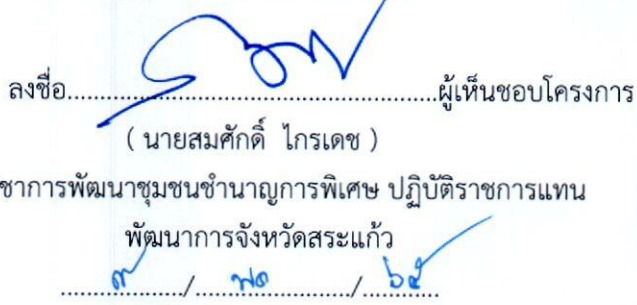 ลงชื่อ................................................ผู้เห็นชอบโครงการ
( นายสมศักดิ์ ไกรเดช )
ชาการพัฒนาชุมชนชำนาญการพิเศษ ปฏิบัติราชการแทน
พัฒนาการจังหวัดสระแก้ว
................/....................../..............